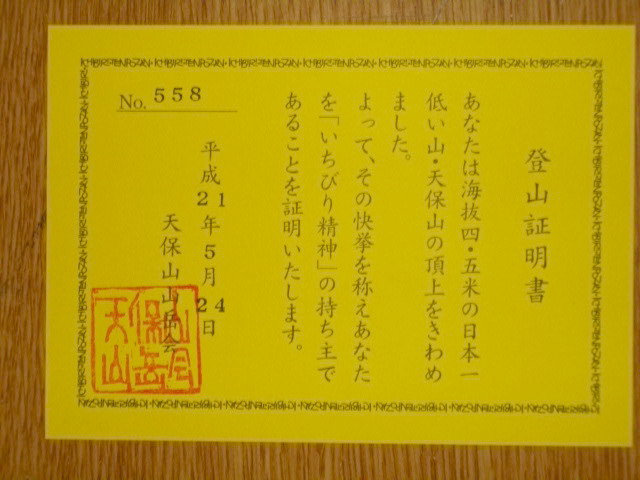 登山証明書
あなたは海抜四・五米の日本一
低い山・天保山の頂上をきわめ
ました。
よって、その快挙を称えあなた
を「いちびり精神」の持ち主で
あることを証明いたします。
平成21年5月24日
天保山山岳会
No. 558
天保山
山岳会